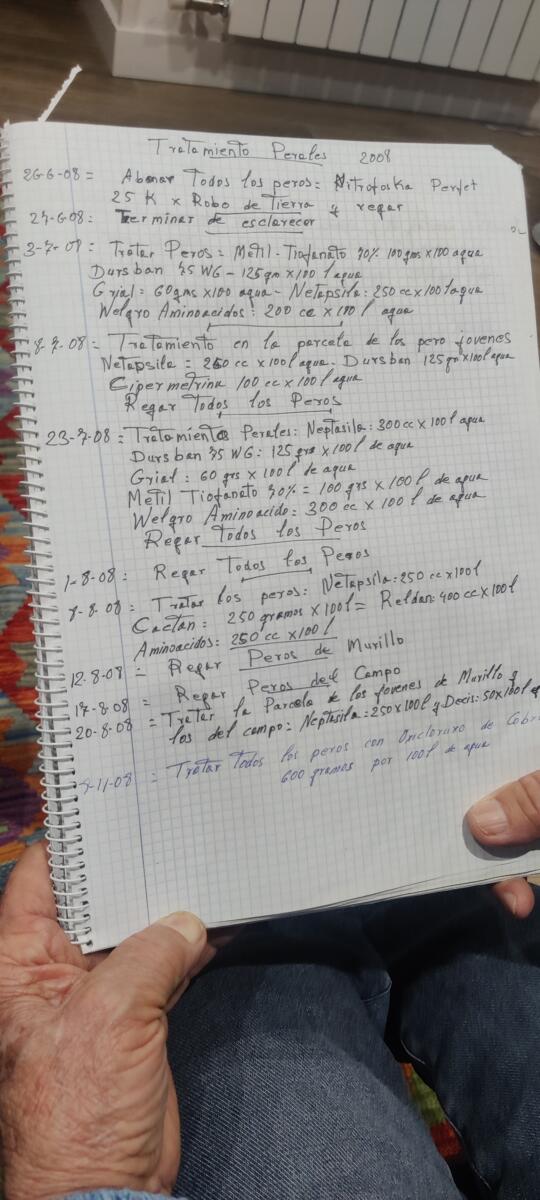 Tratamiento Perales 2008
26-6-08 = Abonar Todos los peros: Nitrofoska Perfet
25 K x Robo de Tierra y regar
27-6-08: Terminar de esclarecer
3-7-08 = Tratar Peros = Metil-Tiofanato 70% 100 gms x 100 agua
Dursban 75 WG - 125 gm x 100 l agua
Grial = 60 gms x 100 agua - Netapsila: 250 cc x 100 l agua
Welgro Aminoacidos: 200 cc x 100 l agua
8-7-08 = Tratamiento en la parcela de los pero jovenes
Netapsila = 250 cc x 100 l agua - Dursban 125 gm x 100 l agua
Cipermetrina 100 cc x 100 l agua
Regar Todos los Peros
23-7-08 = Tratamientos Perales: Neptasila: 300 cc x 100 l agua
Dursban 75 WG: 125 grs x 100 l de agua
Grial: 60 grs x 100 l de agua
Metil Tiofanato 70% = 100 grs x 100 l de agua
Welgro Aminoacido: 300 cc x 100 l de agua
Regar Todos los Peros
1-8-08: Regar Todos los Peros
7-8-08 = Tratar los peros: Netapsila: 250 cc x 100 l
Cactan: 250 gramos x 100 l = Reldan: 400 cc x 100 l
Aminoacidos: 250 cc x 100 l
12-8-08 = Regar Peros de Murillo
17-8-08 = Regar Peros del Campo
20-8-08 = Tratar la Parcela de los Jovenes de Murillo y
los del campo: Neptasila: 250 x 100 l y Decis: 50 x 100 l
-11-08 = Tratar Todos los peros con Oxicloruro de Cobre
600 gramos por 100 l de agua